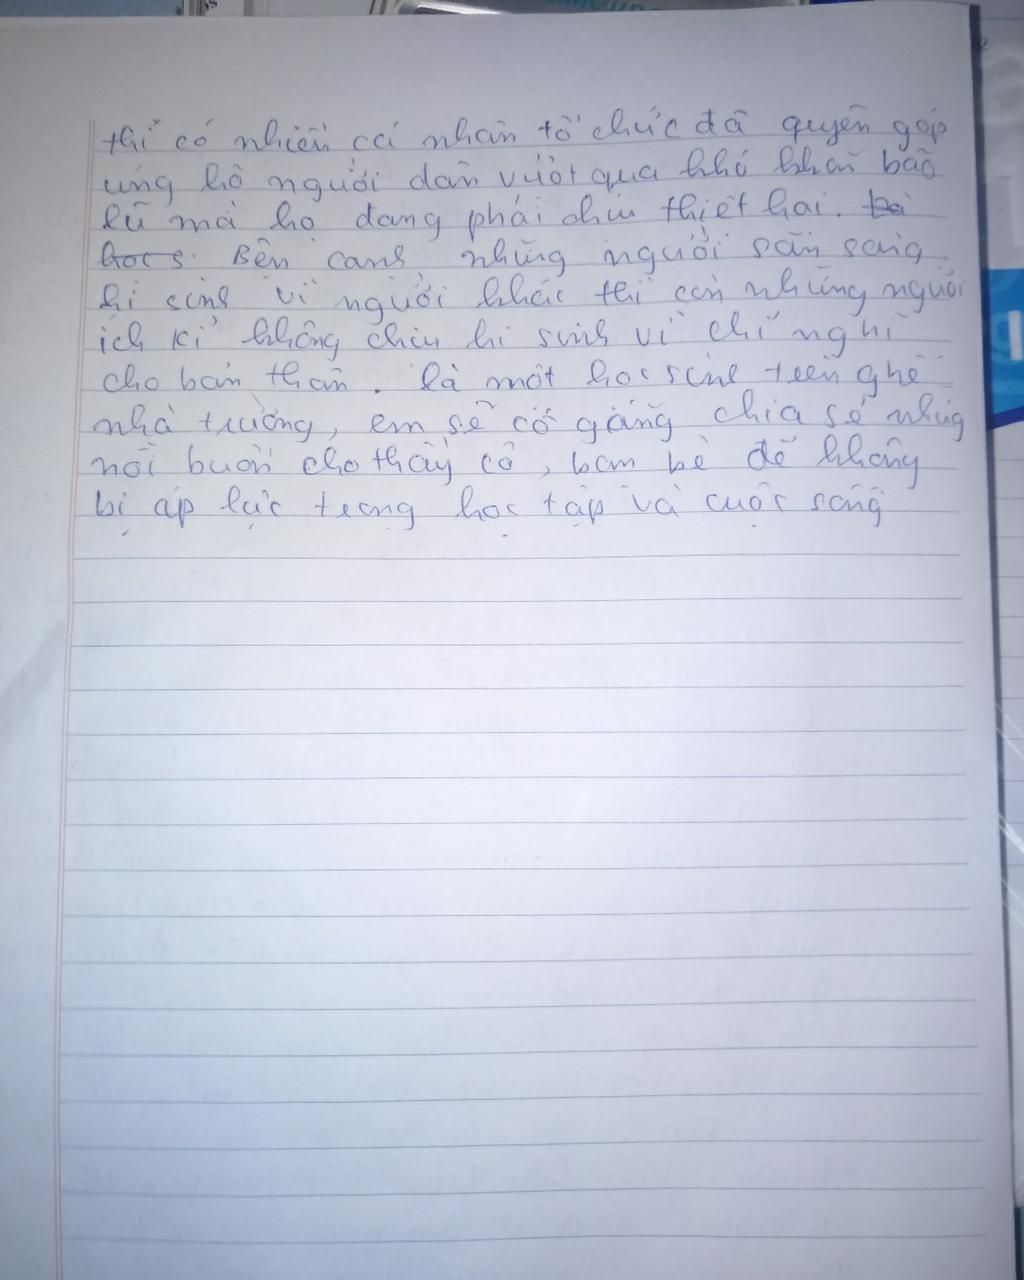 thì có nhiều cá nhân tổ chức đã quyên góp
ủng hộ người dân vượt qua khó khăn bão
lũ mà họ đang phải chịu thiệt hại.
học s. Bên cạnh những người sẵn sàng
hi sinh vì người khác thì còn những người
ích kỉ không chịu hi sinh vì chỉ nghĩ
cho bản thân. là một học sinh trên ghế
nhà trường, em sẽ cố gắng chia sẻ những
nỗi buồn cho thầy cô, bạn bè để không
bị áp lực trong học tập và cuộc sống